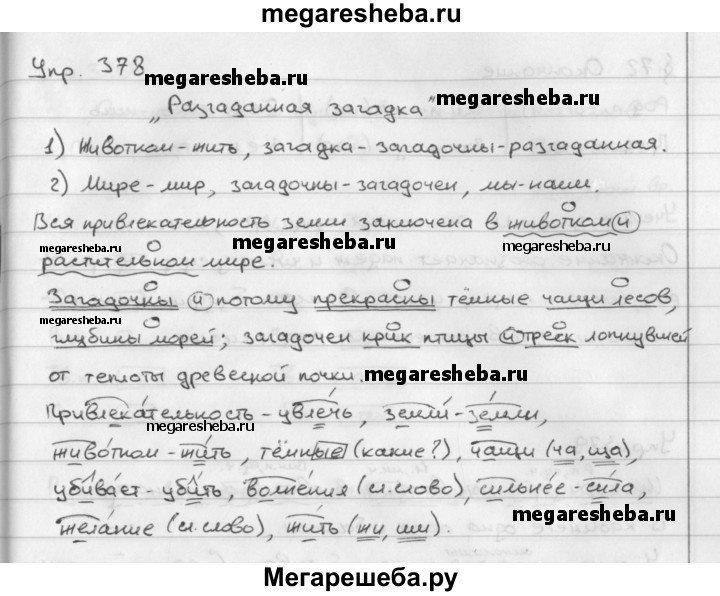 megaresheba.ru
Упр. 378
megaresheba.ru
„Разгаданная загадка“ megaresheba.ru
1) Животном - жить, загадка - загадочны - разгаданная.
2) Мире - мир, загадочны - загадочен, мы - наши.
Вся привлекательность земли заключена в животном и
megaresheba.ru megaresheba.ru megaresheba.ru
растительном мире.
Загадочны и потому прекрасны тёмные чащи лесов,
megaresheba.ru
глубины морей; загадочен крик птицы и треск лопнувшей
megaresheba.ru
от теплоты древесной почки. megaresheba.ru
Привлекательность - увлечь, земли - земли,
megaresheba.ru
животном - жить, тёмные (какие?), чащи (ча, ща),
убивает - убить, волнения (сл. слово), сильнее - сила,
megaresheba.ru
желание (сл. слово), жить (жи, ши).
Мегарешеба.ру